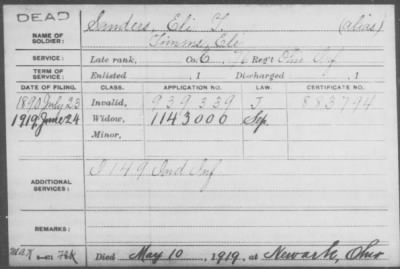 DEAD
NAME OF SOLDIER: Sanders, Eli T. (alias)
Timms, Eli
SERVICE: Late rank, Co. C 76 Reg't Ohio Inf
TERM OF SERVICE: Enlisted , 1 Discharged , 1
DATE OF FILING. CLASS. APPLICATION NO. LAW. CERTIFICATE NO.
1890 July 23 Invalid, 939339 J 883794
1919 June 24 Widow, 1143000 Sep.
Minor,
ADDITIONAL SERVICES: I 149 Ind Inf
REMARKS:
Died May 10, 1919, at Newark, Ohio